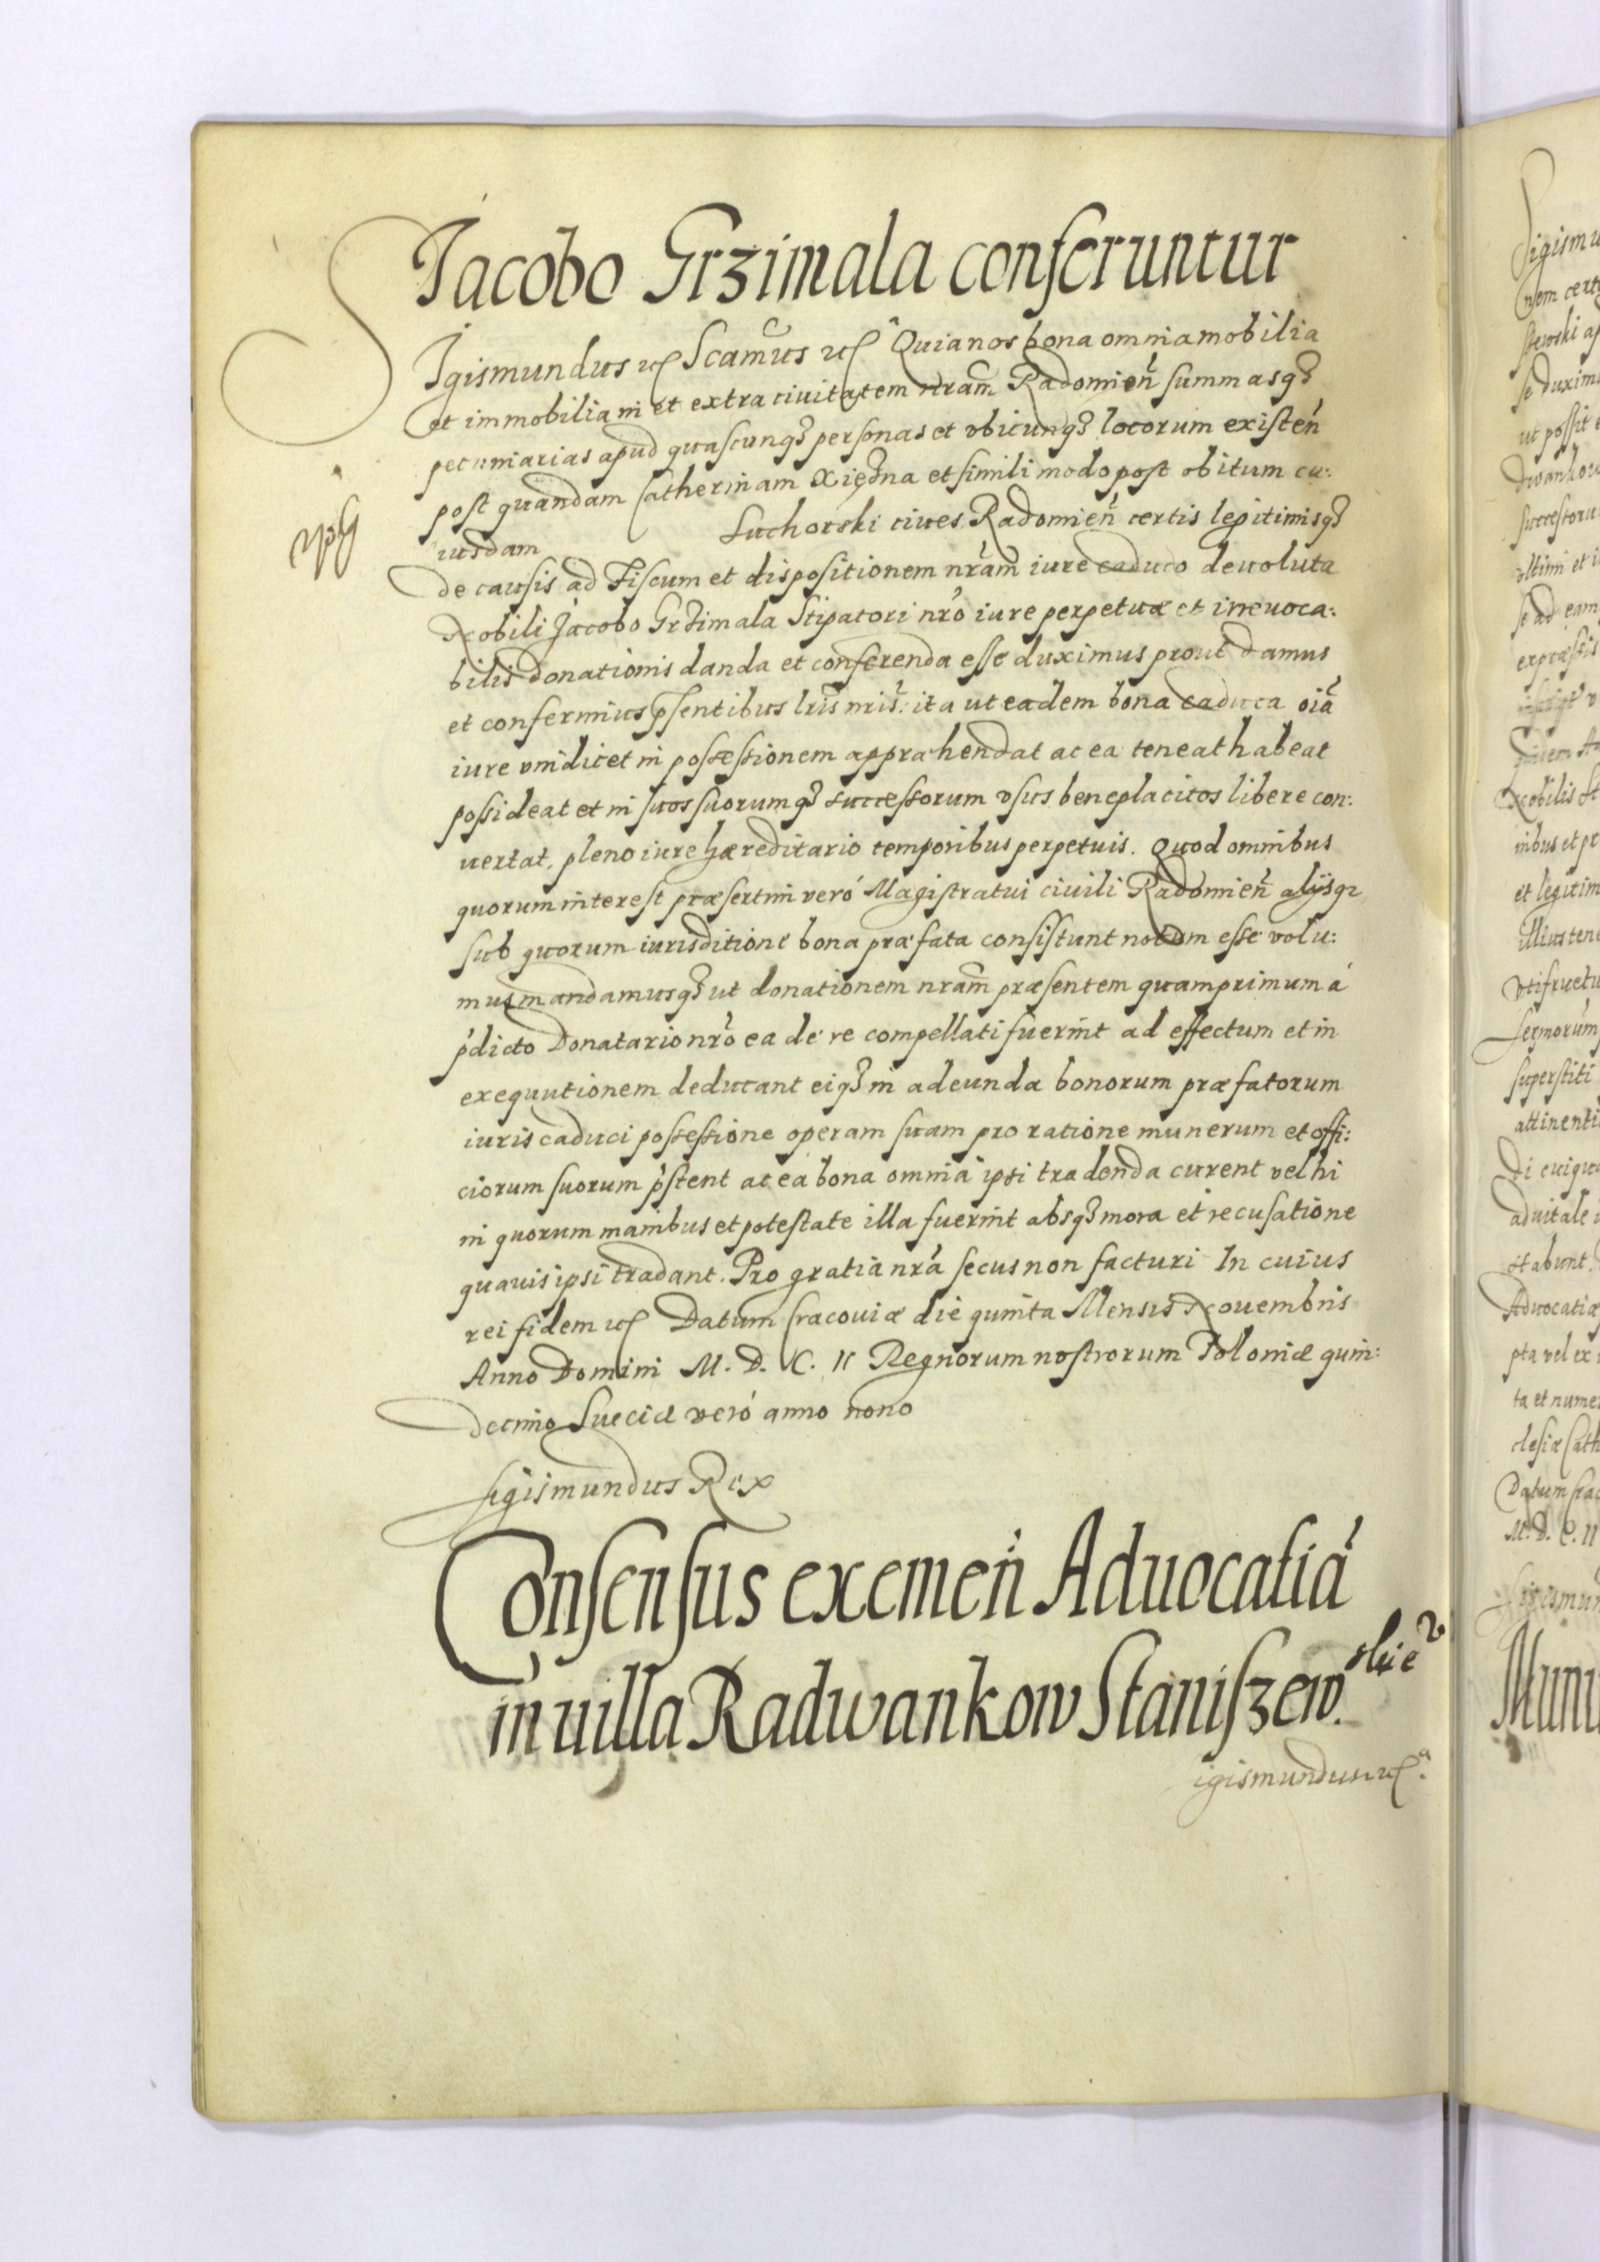 Jacobo Grzimala conferuntur
Sigismundus etc Scamus etc Quia nos bona omnia mobilia
et immobilia in et extra civitatem nram Radomien summasq3
pecuniarias apud quascunq3 personas et vbicunq3 locorum existen
post quandam Catherinam Xiężna et simili modo post obitum cu:
iusdam Suchorski ciues Radomien certis legitimisq3
de causis ad Fiscum et dispositionem nram iure caduco deuoluta
Nobili Jacobo Grzimala Stipatori nro iure perpetuae et irreuoca:
bilis donationis danda et conferenda esse duximus prout damus
et conferimus psentibus lris nris: ita ut eadem bona caduca oia
iure vindicet in possessionem apprahendat ac ea teneat habeat
possideat et in suos suorumq3 successorum vsus beneplacitos libere con:
uertat, pleno iure haereditario temporibus perpetuis. Quod omnibus
quorum interest praesertim veró Magistratui ciuili Radomien alijsq3
sub quorum iurisditione bona praefata consistunt notum esse volu:
mus mandamusq3 ut donationem nram praesentem quamprimum á
pdicto Donatario nro ea de re compellati fuerint ad effectum et in
exequutionem deducant eiq3 in adeunda bonorum praefatorum
iuris caduci possessione operam suam pro ratione munerum et offi:
ciorum suorum pstent ac ea bona omnia ipsi tradenda curent vel hi
in quorum manibus et potestate illa fuerint absq3 mora et recusatione
quauis ipsi tradant. Pro gratia nra secus non facturi In cuius
rei fidem etc Datum Cracouiae die quinta Mensis Nouembris
Anno Domini M. D. C. II Regnorum nostrorum Poloniae quin:
decimo Sueciae veró anno nono
Sigismundus Rex
Consensus exemen Aduocatiá
in uilla Radwankow Staniszew.
igismundus etc